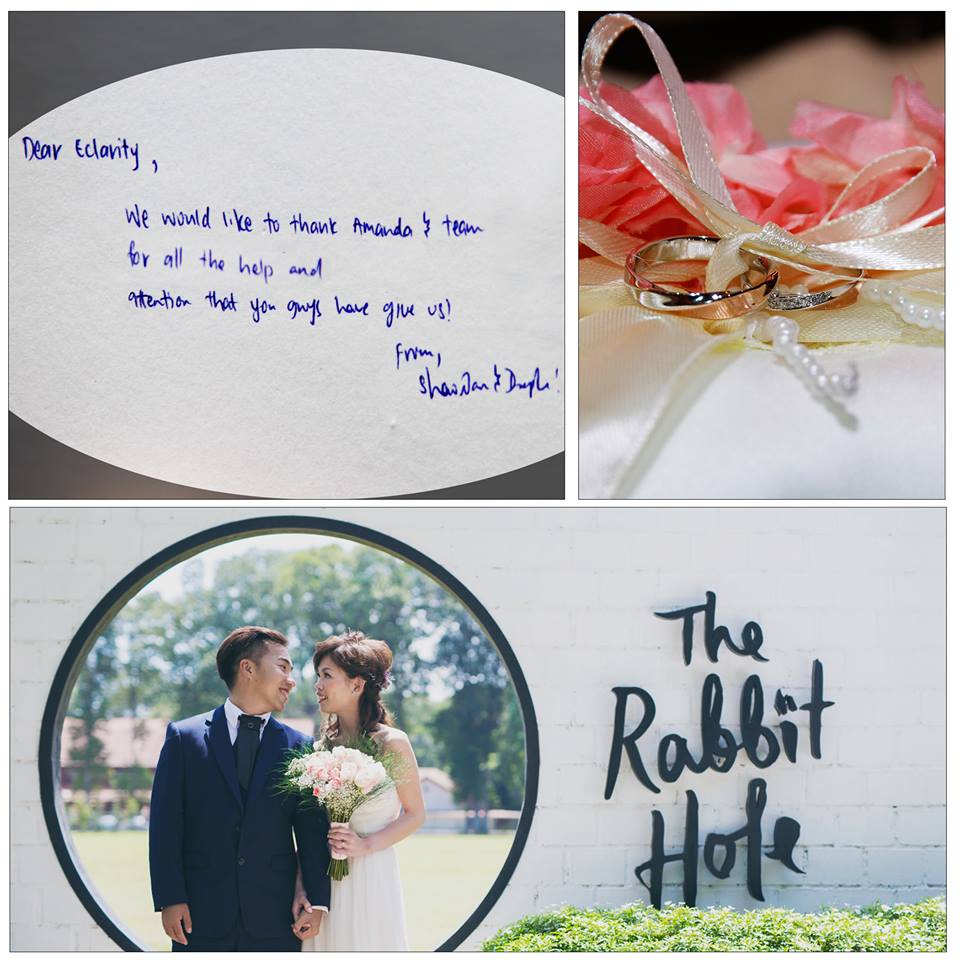 Dear Eclarity,
We would like to thank Amanda & team
for all the help and
attention that you guys have give us!
From,
The
Rabbit
Hole